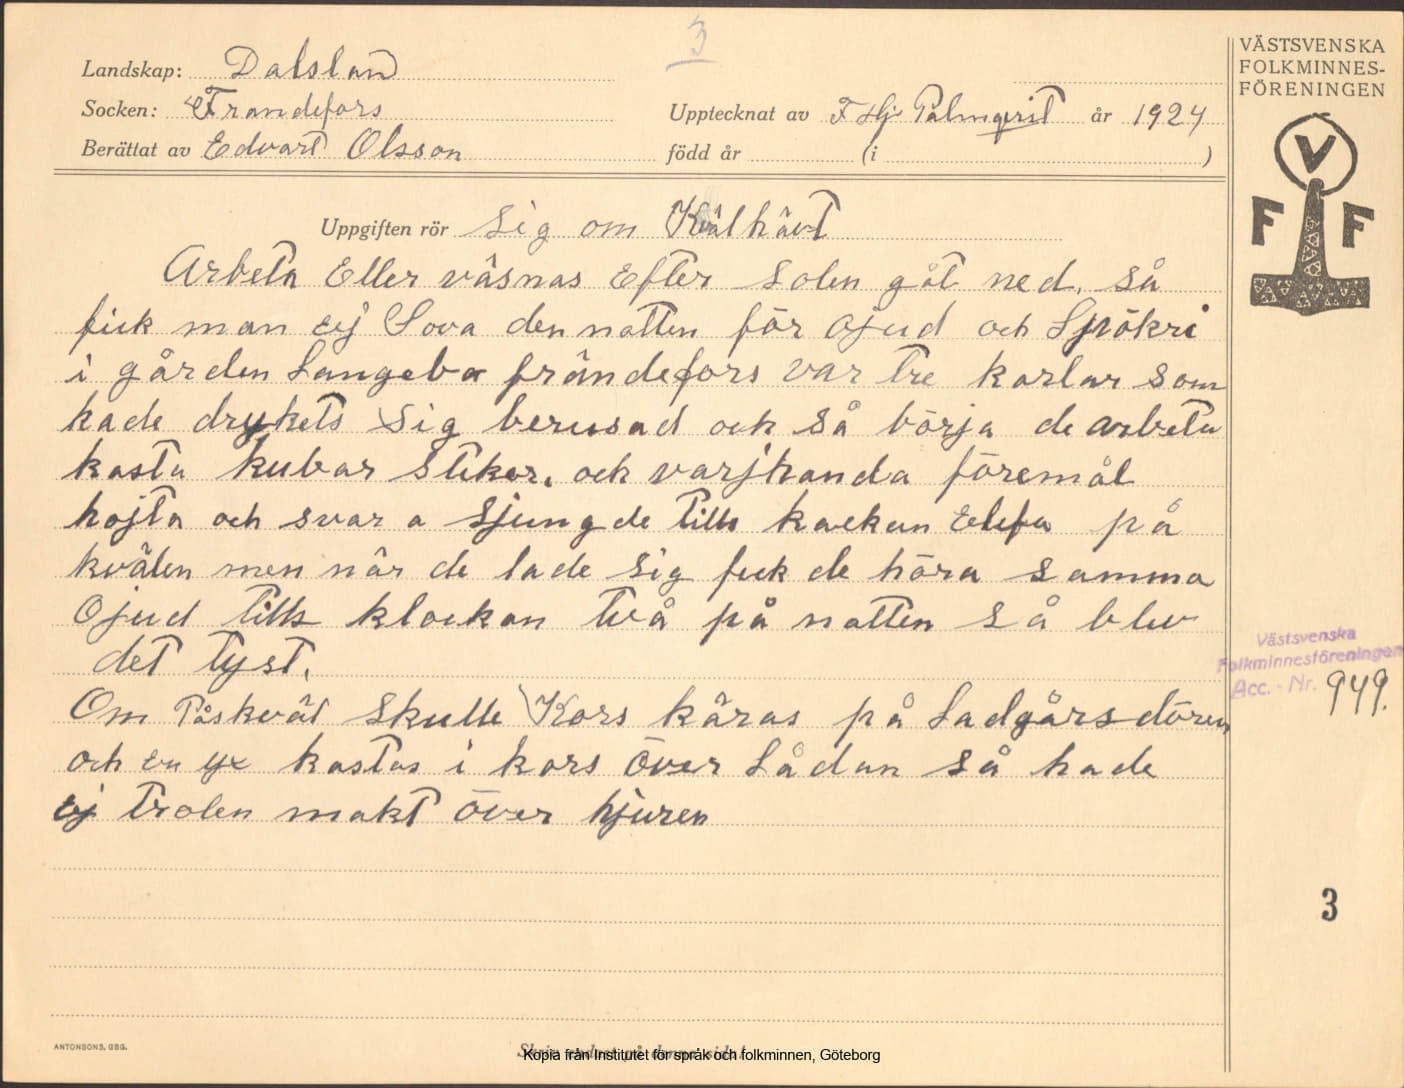 3
Landskap: Dalslan
Socken: Frandefors
Upptecknat av F Hj Palmqvist år 1924
Berättat av Edvart Olsson
född år (i )
Uppgiften rör Sig om Kvälhävt
Arbeta Eller väsnas Efter Solen gåt ned. Så
fick man ej Sova den natten för ojud och Spökri
i gården Langebo frändefors var tre karlar som
hade drykets Sig berusad och så börja de arbeta
kasta kubar Stiker. och varjhanda föremål
hojta och svara Sjungde tills kockan Elefa på
kvälen men när de lade sig fick de höra Samma
Ojud tills klockan två på natten Så blev
det tyst.
Om Påskväl skulle Kors käras på Ladgårsdören
och en yx kastas i kors över Lådan så hade
Ej trolen makt över hjuren
ANTONSONS, GBG.
Kopia från Institutet för språk och folkminnen, Göteborg
VÄSTSVENSKA
FOLKMINNES-
FÖRENINGEN
V
F F
Västsvenska
Folkminnesföreningen
Acc. - Nr. 949.
3